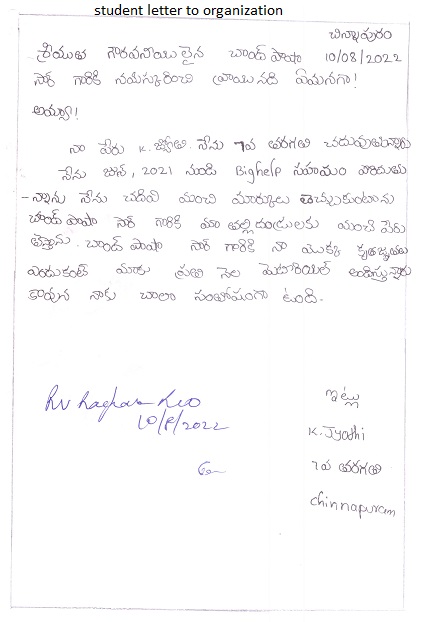 student letter to organization
చిన్నాపురం
శ్రీయుత గౌరవనీయులైన చాంద్ పాషా 10/08/2022
సార్ గారికి నమస్కరించి వ్రాయునది ఏమనగా!
అయ్యా!
నా పేరు K. జ్యోతి. నేను 7వ తరగతి చదువుతున్నాను
నేను జూన్, 2021 నుండి Bighelp సహాయం పొందుతు
-న్నాను నేను చదివి మంచి మార్కులు తెచ్చుకుంటాను
చాంద్ పాషా సార్ గారికి మా తల్లిదండ్రులకు మంచి పేరు
తెస్తాను. చాంద్ పాషా సార్ గారికి నా యొక్క కృతజ్ఞతలు
ఎందుకంటే మాకు ప్రతి నెల మెటీరియల్ అందిస్తున్నారు
కావున నాకు చాలా సంతోషంగా ఉంది.
ఇట్లు
RV Raghava Rao
10/8/2022
K. Jyothi
7వ తరగతి
chinnapuram